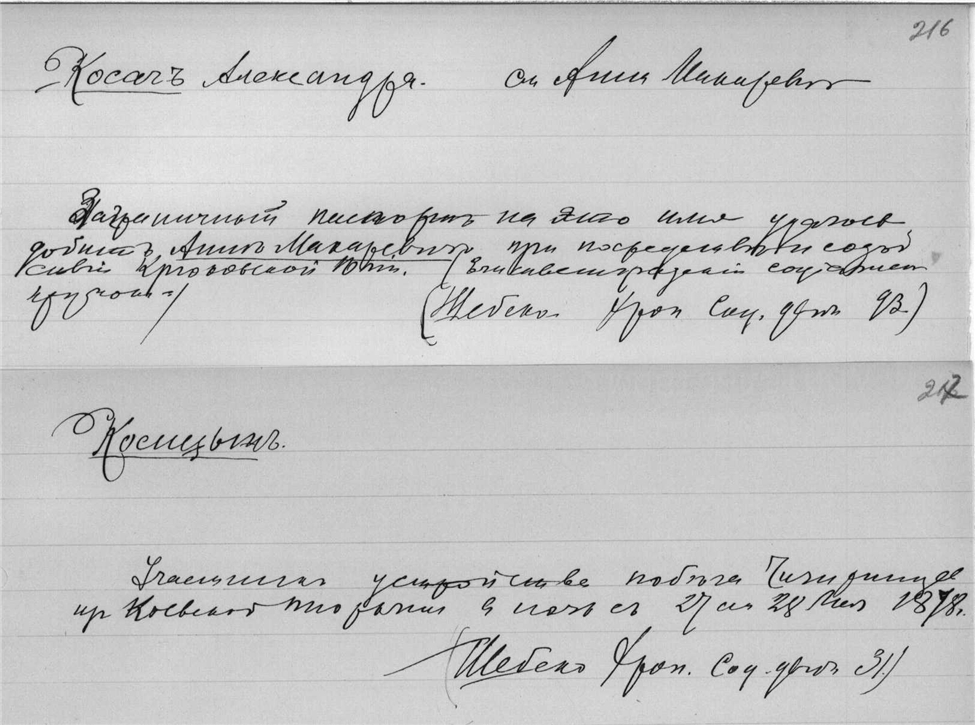 216
Косачъ Александра. см Анна Макаревич
Заграничный паспортъ на это имя удалось
добыть Аннѣ Макаревичъ при посредствѣ и содѣй
ствіи Крюковской Юліи. (Елисаветградскій социалист
кружокъ)
(Шебеко Хрон Соц. движ 93)
217
Косицынъ.
Участникъ устройства побѣга Чигиринцевъ
из Кіевской тюрьмы в ночь съ 27 на 28 Мая 1878г.
(Шебеко Хрон. Соц. движ 31)